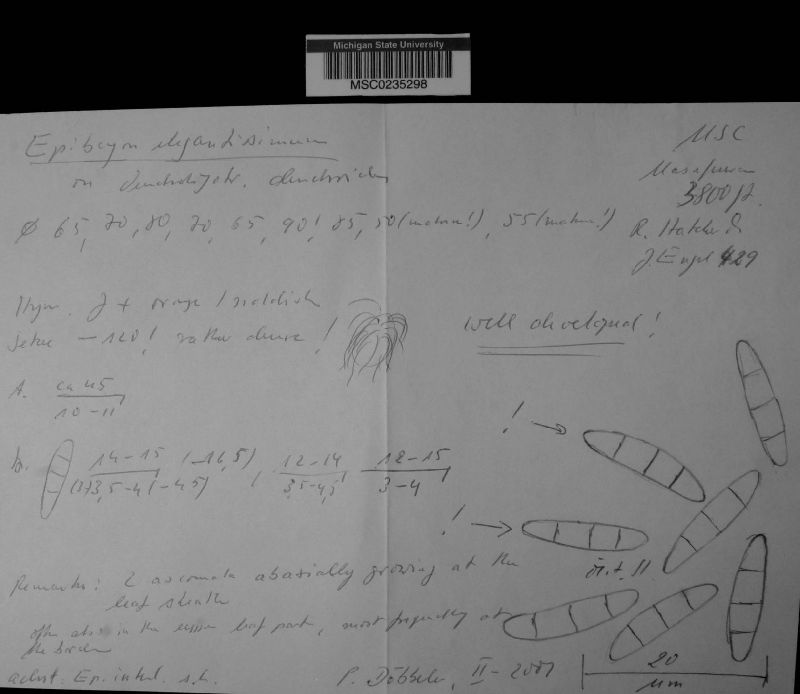 Michigan State University
MSC0235298
Epibryon elegantissimum
on dendroligotr. dendroides
MSC
Masafuera
3800 ft.
R. Hatcher &
J. Engel 429
Ø 65, 70, 80, 70, 65, 90!, 85, 50 (mature!), 55 (mature!)
Hym. J + orange / reddish
Setae —120! rather dense!
well developed!
A. ca 45
10 – 11
!
14 – 15 (–16,5), 12 – 14, 12 – 15
(3)3,5–4(–4,5) 3,5–4,5 3 – 4
!
Remarks: 2 ascomata abaxially growing at the
leaf sheath
often also in the upper leaf part, most frequently at
the border
Ep. intrl. s.l.
P. Döbbeler, II – 2001
20
µm